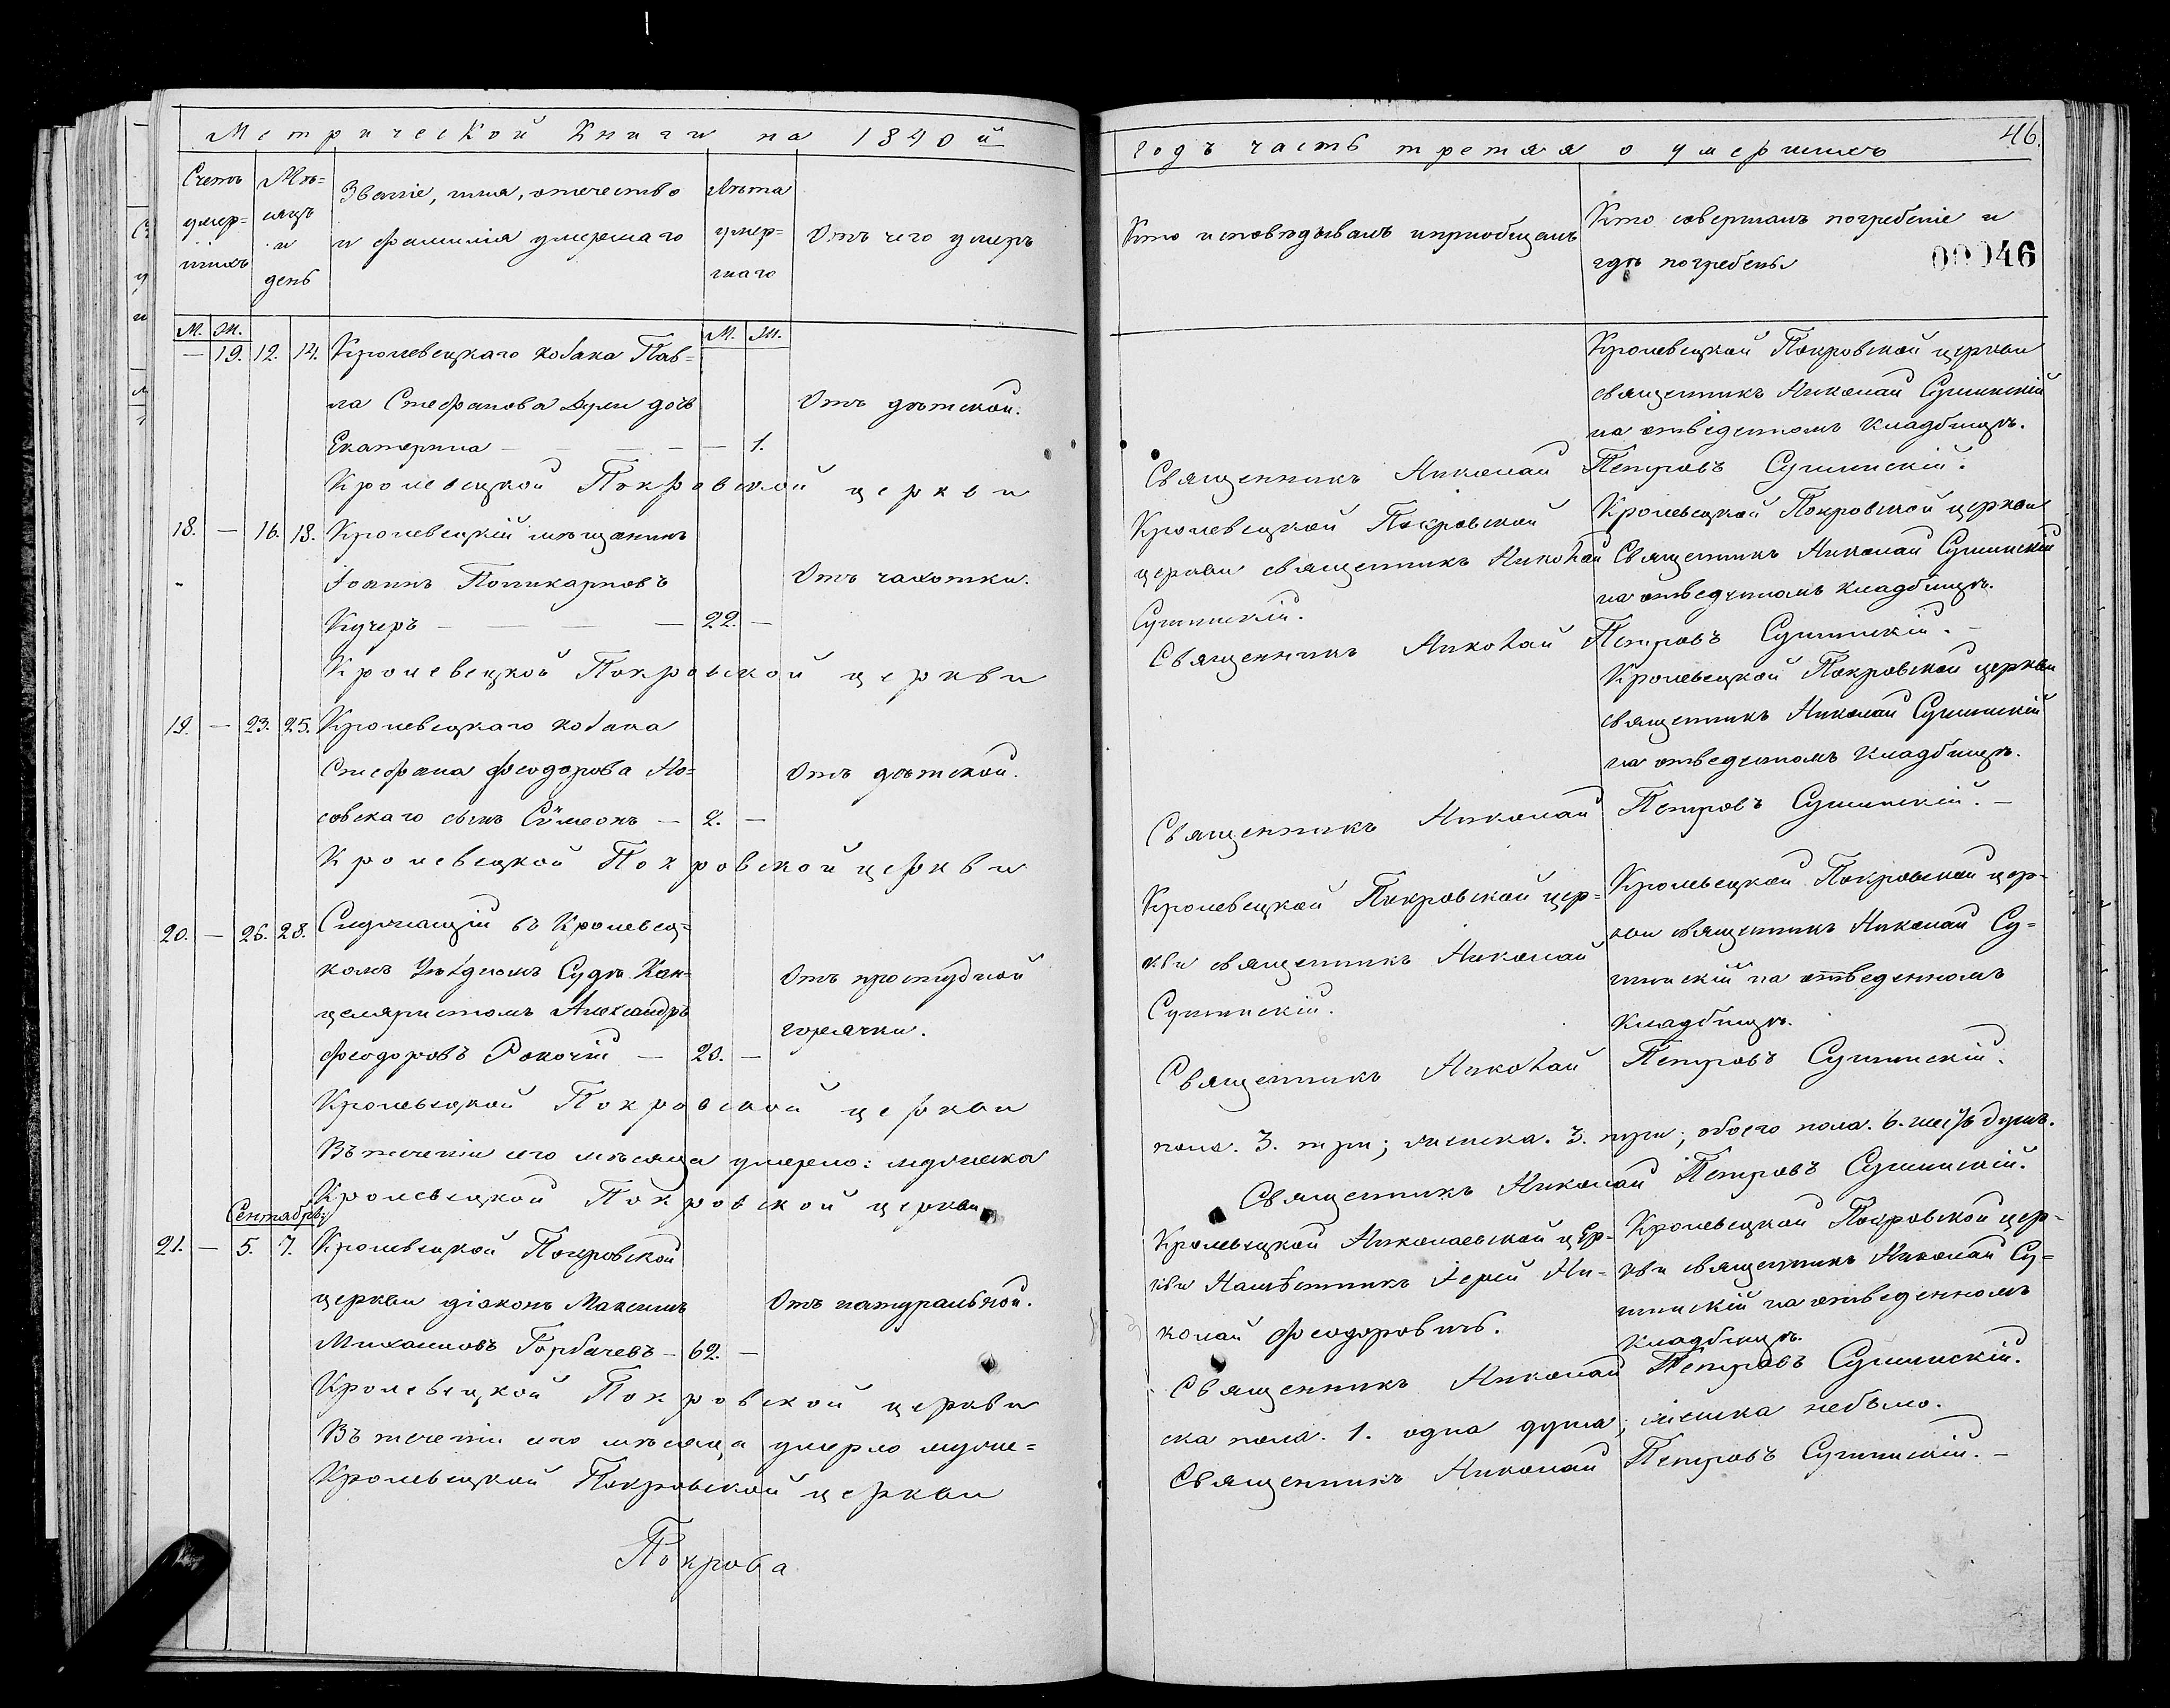 Метрической Книги на 1840й
Счетъ умер= шихъ
Мѣ= сяцъ и день
Званіе, имя, отечество
и фамилія умершаго
Лѣта умер= шаго
Отъ чего умеръ
М. Ж.
М. Ж.
— 19. 12. 14. Кролевецкаго козака Пав=
ла Стефанова дочь
Отъ дѣтской.
Екатерина — — 1.
Кролевецкой Покровской церкви
18. — 16. 18. Кролевецкій мѣщанинъ
Іоаннъ Поликарповъ
Отъ чахотки.
Кучеръ — 22. —
Кролевецкой Покровской церкви
19. — 23. 25. Кролевецкаго козака
Стефана Феодорова Но=
Отъ дѣтской.
совскаго сынъ Сѵмеонъ — 2. —
Кролевецкой Покровской церкви
20. — 26. 28. Служащій въ Кролевец=
комъ Уѣздномъ Судѣ Кан=
Отъ простудной
целяристомъ Александръ
горячки.
Феодоровъ Рокочій — 20. —
Кролевецкой Покровской церкви
Въ теченіи сего мѣсяца умерло: мужеска
Кролевецкой Покровской церкви
Сентябрь
21. — 5. 7. Кролевецкой Покровской
церкви діаконъ Максимъ
Отъ натуральной.
Михаиловъ Горбачевъ — 62. —
Кролевецкой Покровской церкви
Въ теченіи сего мѣсяца умерло муже=
Кролевецкой Покровской церкви
Покрова
годъ часть третяя о умершихъ
46.
Кто исповѣдывалъ и пріобщалъ
Кто совершалъ погребеніе и
гдѣ погребены
00046
Кролевецкой Покровской церкви
священникъ Николай Сушинскій
на отведенномъ кладбищѣ.
Священникъ Николай Петровъ Сушинскій.
Кролевецкой Покровской
церкви священникъ Николай
Сушинскій.
Кролевецкой Покровской церкви
Священникъ Николай Сушинскій
на отведенномъ кладбищѣ.
Священникъ Николай Петровъ Сушинскій. —
Кролевецкой Покровской церкви
священникъ Николай Сушинскій
на отведенномъ кладбищѣ.
Священникъ Николай Петровъ Сушинскій. —
Кролевецкой Покровской цер=
кви священникъ Николай
Сушинскій.
Кролевецкой Покровской цер=
кви священникъ Николай Су=
шинскій на отведенномъ
кладбищѣ.
Священникъ Николай Петровъ Сушинскій.
пола. 3. три; женска. 3. три; обоего пола. 6. шесть душъ.
Священникъ Николай Петровъ Сушинскій.
Кролевецкой Николаевской цер=
кви Намѣстникъ Іерей Ни=
колай Феодоровичъ.
Кролевецкой Покровской цер=
кви священникъ Николай Су=
шинскій на отведенномъ
кладбищѣ.
Священникъ Николай Петровъ Сушинскій.
ска пола. 1. одна душа; женска небыло.
Священникъ Николай Петровъ Сушинскій. —